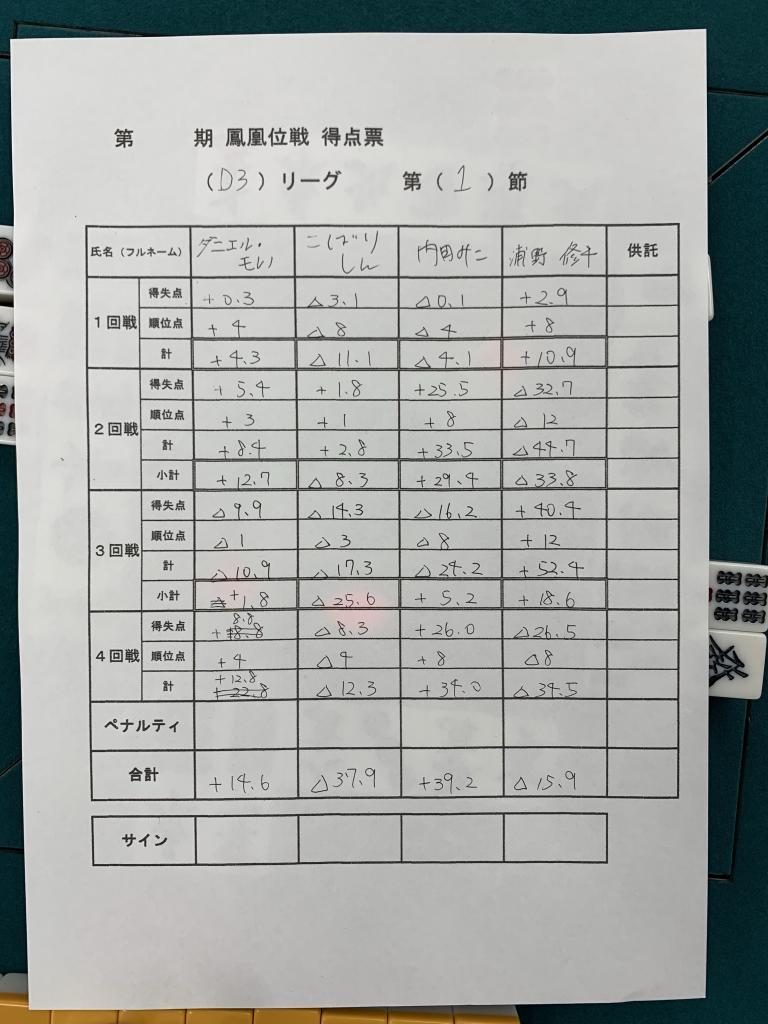 第　　期 鳳凰位戦 得点票
（D3）リーグ　第（1）節
氏名（フルネーム） ダニエル・モレ こばりしん 内田みこ 浦野 修平 供託
1回戦 得失点 +0.3 △3.1 △0.1 +2.9
順位点 +4 △8 △4 +8
計 +4.3 △11.1 △4.1 +10.9
2回戦 得失点 +5.4 +1.8 +25.5 △32.7
順位点 +3 +1 +8 △12
計 +8.4 +2.8 +33.5 △44.7
小計 +12.7 △8.3 +29.4 △33.8
3回戦 得失点 △9.9 △14.3 △16.2 +40.4
順位点 △1 △3 △8 +12
計 △10.9 △17.3 △24.2 +52.4
小計 +1.8 △25.6 +5.2 +18.6
4回戦 得失点 +8.8 △8.3 +26.0 △26.5
順位点 +4 △4 +8 △8
計 +12.8 △12.3 +34.0 △34.5
ペナルティ
合計 +14.6 △37.9 +39.2 △15.9
サイン